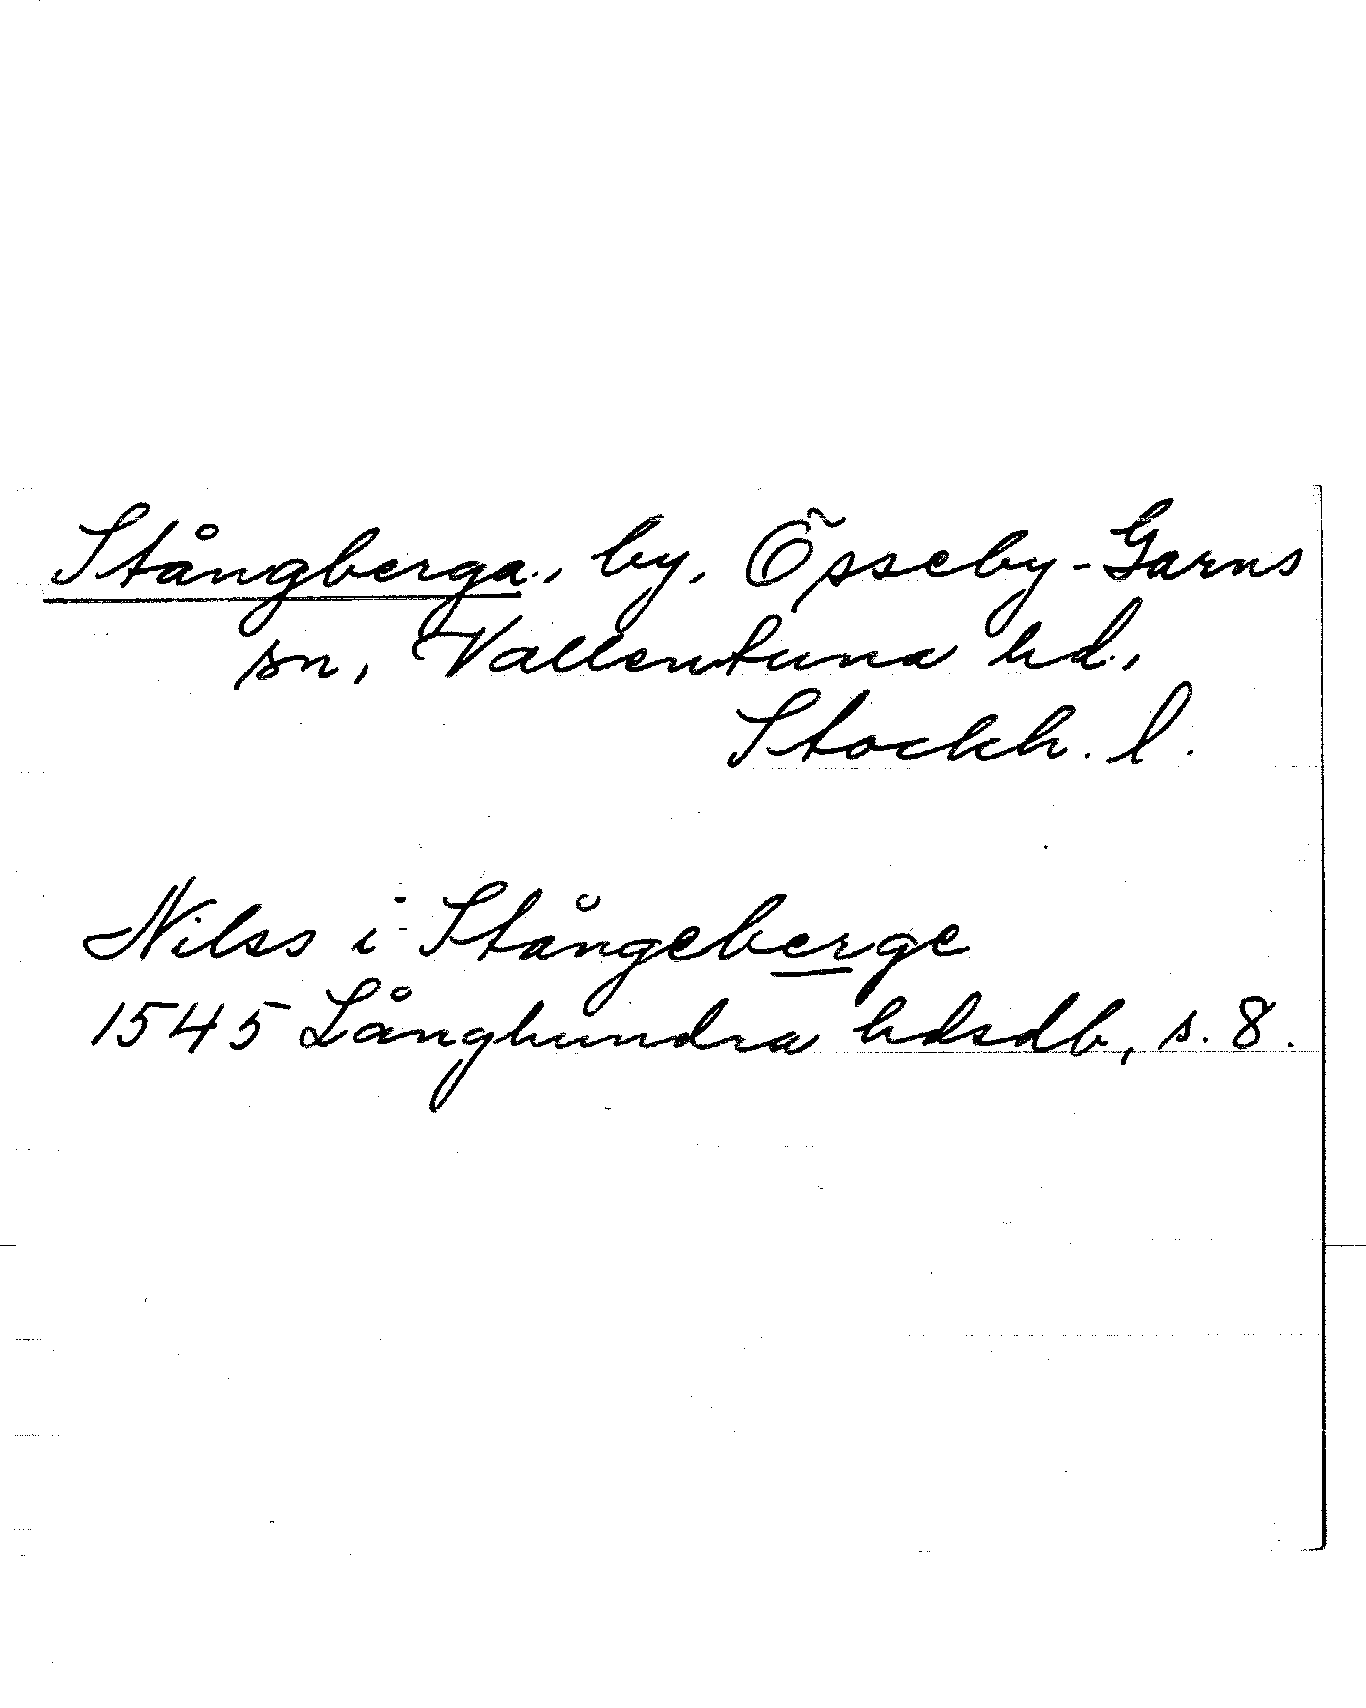 Stångberga., by, Össeby-Garns
sn, Vallentuna hd.,
Stockh. l.
Nilss i Stångeberge
1545 Långhundra hdsdb, s. 8.